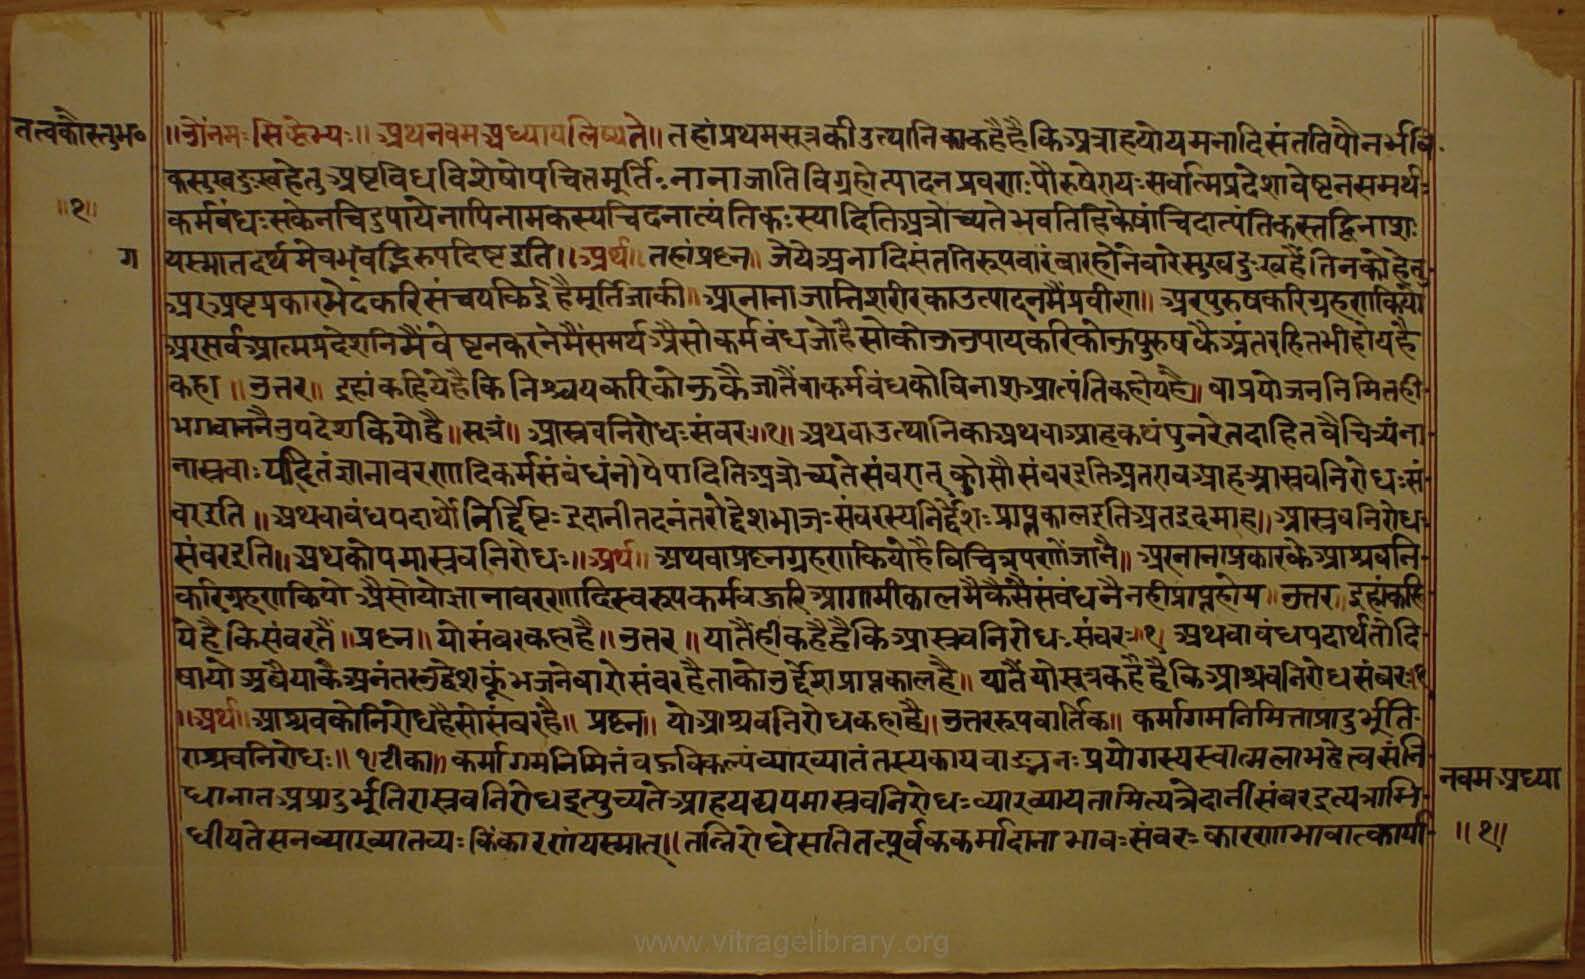 तत्वकौस्तुभ०
॥१॥
॥ओंनमःसिद्धेभ्यः॥ अथनवमअध्यायलिष्यते॥ तहांप्रथमसूत्रकीउत्थानिकाकहैहैकिअत्राहयोयमनादिसंततिपौनर्भवि
कसुखदुःखहेतुअष्टविधविशेषोपचितमूर्तिःनानाजातिविग्रहोत्पादनप्रवणःपौरुषेरायःसर्वात्मप्रदेशावेष्टनसमर्थः
कर्मबंधःसकेनचिदुपायेनापिनामकस्यचिदनात्यंतिकःस्यादितिअत्रोच्यतेभवतिहिकेषांचिदात्यंतिकस्तद्विनाशः
ग
यस्मातदर्थमेवभवद्भिरुपदिष्टइति॥ अर्थ॥ तहांप्रश्न॥ जेयेअनादिसंततिरूपवारंवारहोनेवारेसुखदुःखहैंतिनकोहेतु
अरुअष्टप्रकारभेदकरिसंचयकिईहैमूर्तिजाकी॥ अरनानाजातिशरीरकाउत्पादनमैंप्रवीण॥ अरपुरुषकरिग्रहणकियो
अरसर्वआत्मप्रदेशनिमैंवेष्टनकरनेमैंसमर्थअैसोकर्मबंधजोहैसोकोऊउपायकरिकोऊपुरुषकैअंतरहितभीहोयहै
कहा॥ उत्तर॥ इहांकहियेहैकिनिश्चयकरिकोऊकैजातैंवाकर्मबंधकोविनाशआत्यंतिकहोयहै॥ वाप्रयोजननिमितही
भगवाननैउपदेशकियोहै॥ सूत्रं॥ आस्रवनिरोधःसंवरः॥१॥ अथवाउत्थानिकाअथवाआहकथंपुनरेतदाहितवैचित्र्यंना
नास्रवाःपदितंज्ञानावरणादिकर्मसंबंधंनोपेपादितिअत्रोच्यतेसंवरात्कोसौसंवरइतिअतएवआहआस्रवनिरोधःसं
वरइति॥ अथवाबंधपदार्थोनिर्द्दिष्टःइदानीतदनंतरोद्देशभाजःसंवरस्यनिर्द्देशःप्राप्तकालइतिअतइदमाह॥ आस्रवनिरोधः
संवरइति॥ अथकोपमास्रवनिरोधः॥ अर्थ॥ अथवाप्रश्नग्रहणकियोहैविचित्रपणोंजानै॥ अरनानाप्रकारकेआश्रवनि
करिग्रहणकियो अैसोयोज्ञानावरणादिस्वरूपकर्मवजरिआगामीकालमैकैसैसंबंधनैनहीप्राप्तहोय॥ उत्तर॥ इहांकहि
येहैकिसंवरतैं॥ प्रश्न॥ योसंवरकहाहै॥ उत्तर॥ यातैंहीकहैहैकिआस्रवनिरोधःसंवरः॥१॥ अथवाबंधपदार्थतोदि
षायोअवैयाकैअनंतरउद्देशकूंभजनेवारोसंवरहैताकोनुर्द्देशप्राप्तकालहै॥ यातैंयोसूत्रकहैहैकिआश्रवनिरोधसंवरः॥१
॥अर्थ॥ आश्रवकोनिरोधहैसोसंवरहै॥ प्रश्न॥ योआश्रवनिरोधकहाहै॥ उत्तररूपवार्तिक॥ कर्मागमनिमित्ताप्रादुर्भूति
राश्रवनिरोधः॥१॥टीका॥ कर्मागमनिमित्तंवऊविकल्पंव्याख्यातंतस्यकायवाङ्मनःप्रयोगस्यस्वात्मलाभहेत्वसंनि
धानातअप्रादुर्भूतिरास्रवनिरोधइत्युच्यतेआहयद्यपमास्रवनिरोधःव्याख्यायतामित्यत्रेदानींसंवरइत्यत्राभि
धीयतेसनव्याख्यातव्यःकिंकारणंयस्मात्॥ तन्निरोधेसतितत्पूर्वककर्मादानाभावःसंवरःकारणाभावात्कार्या
नवमअध्या
॥१॥
www.vitragelibrary.org